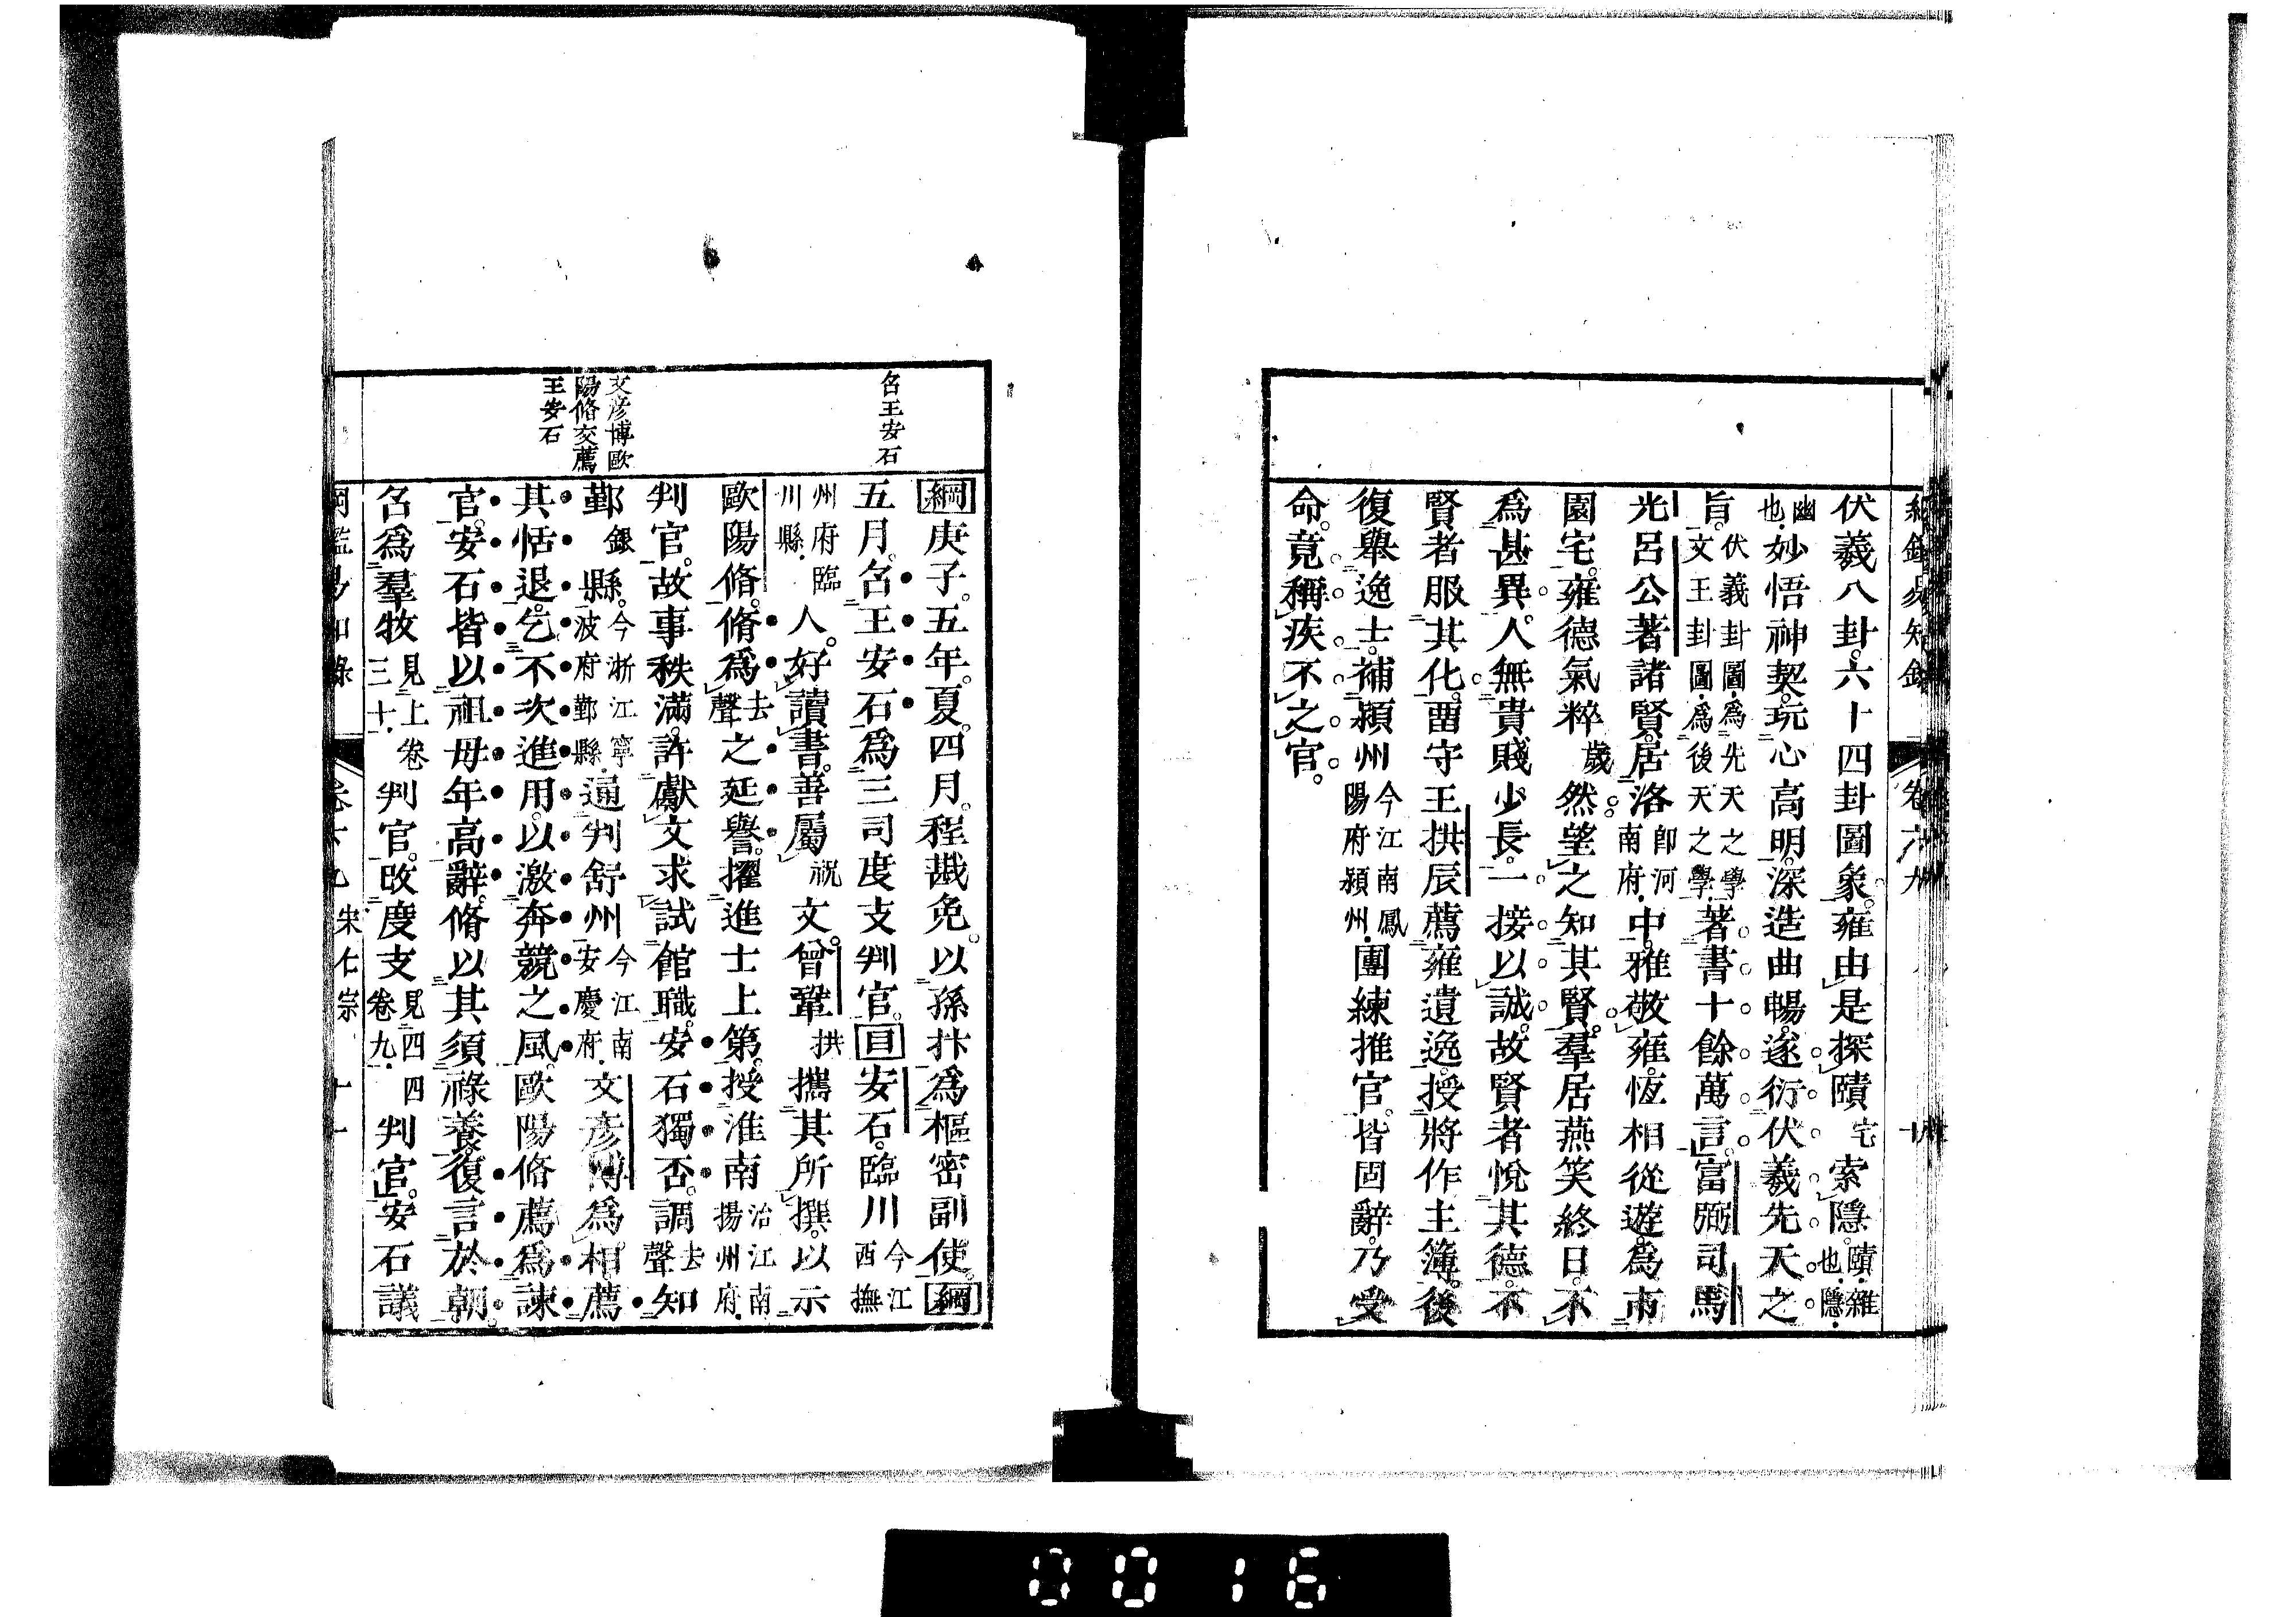 伏羲八卦。六十四卦圖象。雍由是探賾宅索隱。賾雜也隱
幽也妙悟神契。玩心高明。深造曲暢。遂衍伏羲先天之
旨。伏羲卦圖爲先天之學文王卦圖爲後天之學著書十餘萬言。富弼司馬
光呂公著諸賢。居洛卽河南府中。雅敬雍。恆相從遊。爲市
園宅。雍德氣粹歲然。望之知其賢。羣居燕笑終日。不
爲甚異。人無貴賤少長。一接以誠。故賢者悅其德。不
賢者服其化。畱守王拱辰薦雍遺逸。授將作主簿。後
復舉逸士。補潁州今江南鳳陽府潁州團練推官。皆固辭。乃受
命。竟稱疾不之官。
名王安石
文彥博歐
陽脩交薦
王安石
綱庚子。五年。夏。四月。程戡免。以孫抃爲樞密副使。綱
五月。召王安石爲三司度支判官。目安石。臨川今江西撫
州府臨川縣人。好讀書。善屬祝文。曾鞏拱攜其所撰。以示
歐陽脩。脩爲去聲之延譽。擢進士上第。授淮南治江南揚州府
判官。故事秩滿。許獻文求試館職。安石獨否。調去聲知
鄞銀縣。今浙江寧波府鄞縣通判舒州今江南安慶府文彥博爲相。薦
其恬退。乞不次進用。以激奔競之風。歐陽脩薦爲諫
官。安石皆以祖母年高辭。脩以其須祿養。復言於朝。
召爲羣牧見上卷三十判官。改度支見四卷九四判官。安石議
宋仁宗 十一